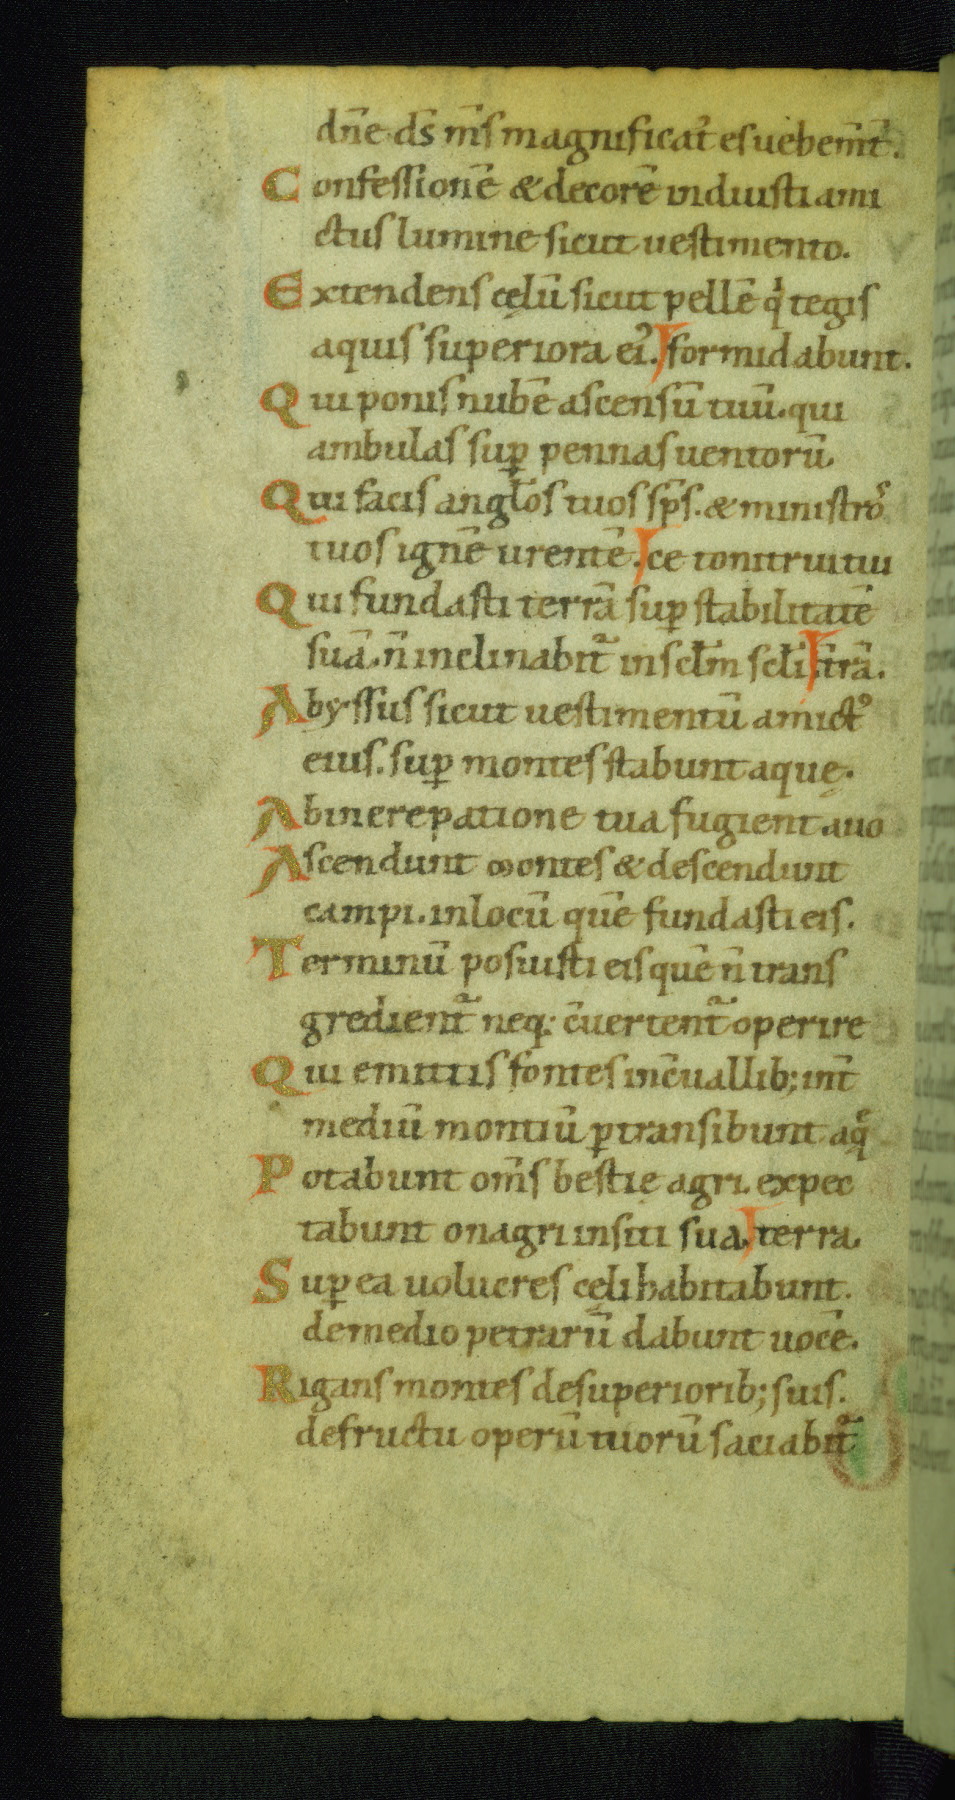 dn̄e ds̄ ms̄ magnificat̄ es uehem̄t̄.
Confessionē & decorē induisti ami
ctus lumine sicut uestimento.
Extendens cęlū sicut pellē qⁱ tegis
aquis superiora ei᾿. formidabunt.
Qui ponis nubē ascensū tuū. qui
ambulas suꝑ pennas uentorū
Qui facis angłos tuos sp̄s. & ministros
tuos ignē urentē. ce tonitrui tui
Qui fundasti terrā suꝑ stabilitatē
suā. n̄ inclinabit᷑ in sćlm sćli trā.
Abyssus sicut uestimentū amict᾿
eius. suꝑ montes stabunt aquę.
Ab increpatione tua fugient auo
Ascendunt montes & descendunt
campi. in locū quē fundasti eis.
Terminū posuisti eis quē n̄ trans
gredient᷑ neq; c̄uertent᷑ operire
Qui emittis fontes in c̄uallib; int̄
mediū montiū ꝑtransibunt aqᵉ
Potabunt om̄s bestię agri. expec
tabunt onagri in siti sua. terra.
Suꝑ ea uolucres cęli habitabunt.
de medio petrarū dabunt uocē.
Rigans montes de superiorib; suis.
de fructu operū tuorū saciabit᷑